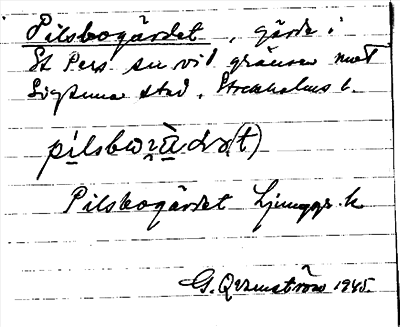 Pilsbogärdet, gärde i
St Pers sn vid gränsen mot
Sigtuna stad, Stockholms l.
Pilsbogärdet Ljunggr. k
G. Qvarnström 1945.